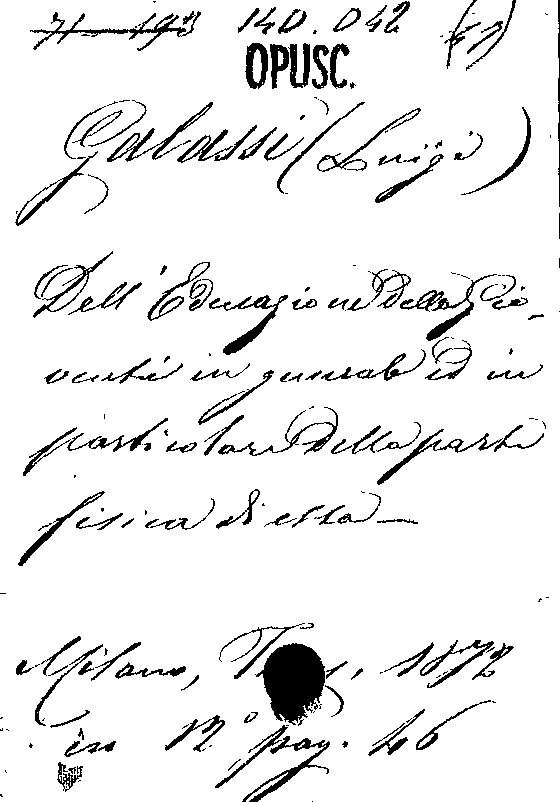 71-193 140.042
OPUSC.
Galassi (Luigi)
Dell'Educazione della Gio-
ventù in generale ed in
particolare della parte
fisica di essa —
Milano, 1872
in 12° pag. 46